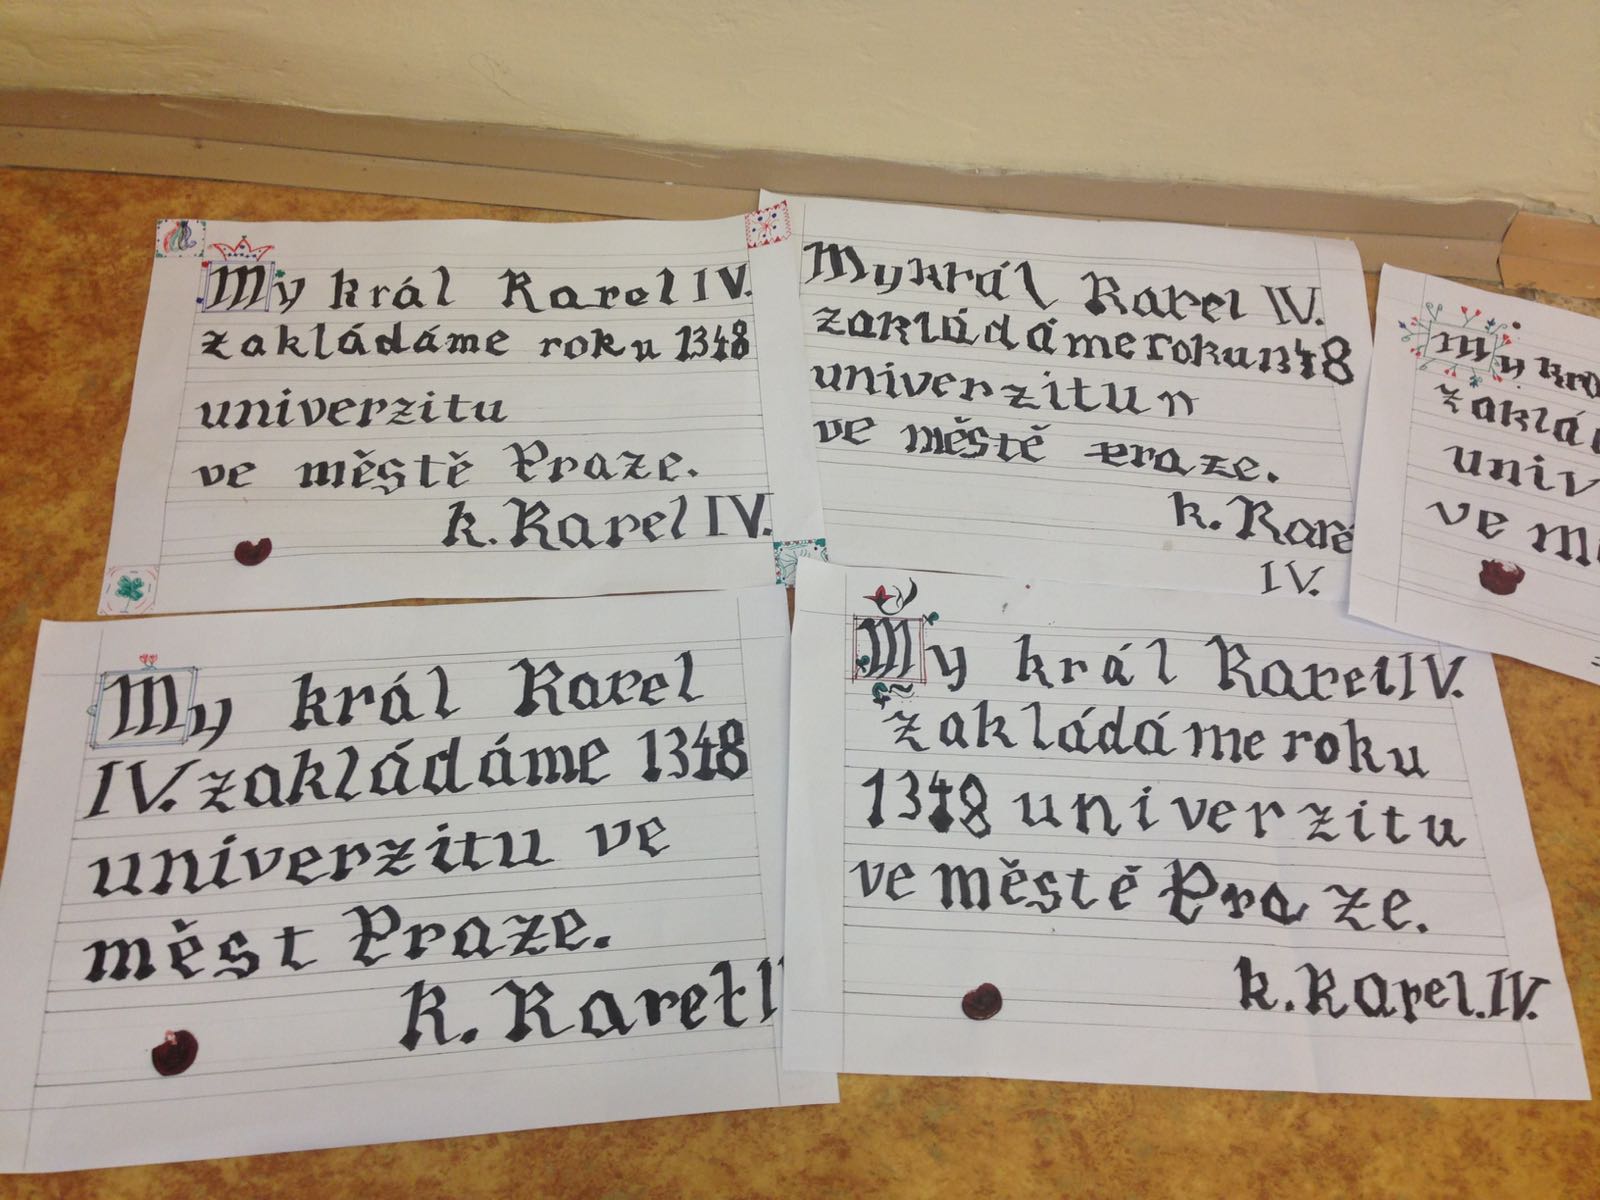 My král Karel IV.
zakládáme roku 1348
univerzitu
ve městě Praze.
k. Karel IV.
My král Karel IV.
zakládáme roku 1348
univerzitu n
ve městě Praze.
k. Karel
IV.
My krá
zaklád
univ
ve m
My král Karel
IV. zakládáme 1348
univerzitu ve
měst Praze.
k. Karel I
My král Karel IV.
zakládáme roku
1348 univerzitu
ve městě Praze.
k. Karel. IV.